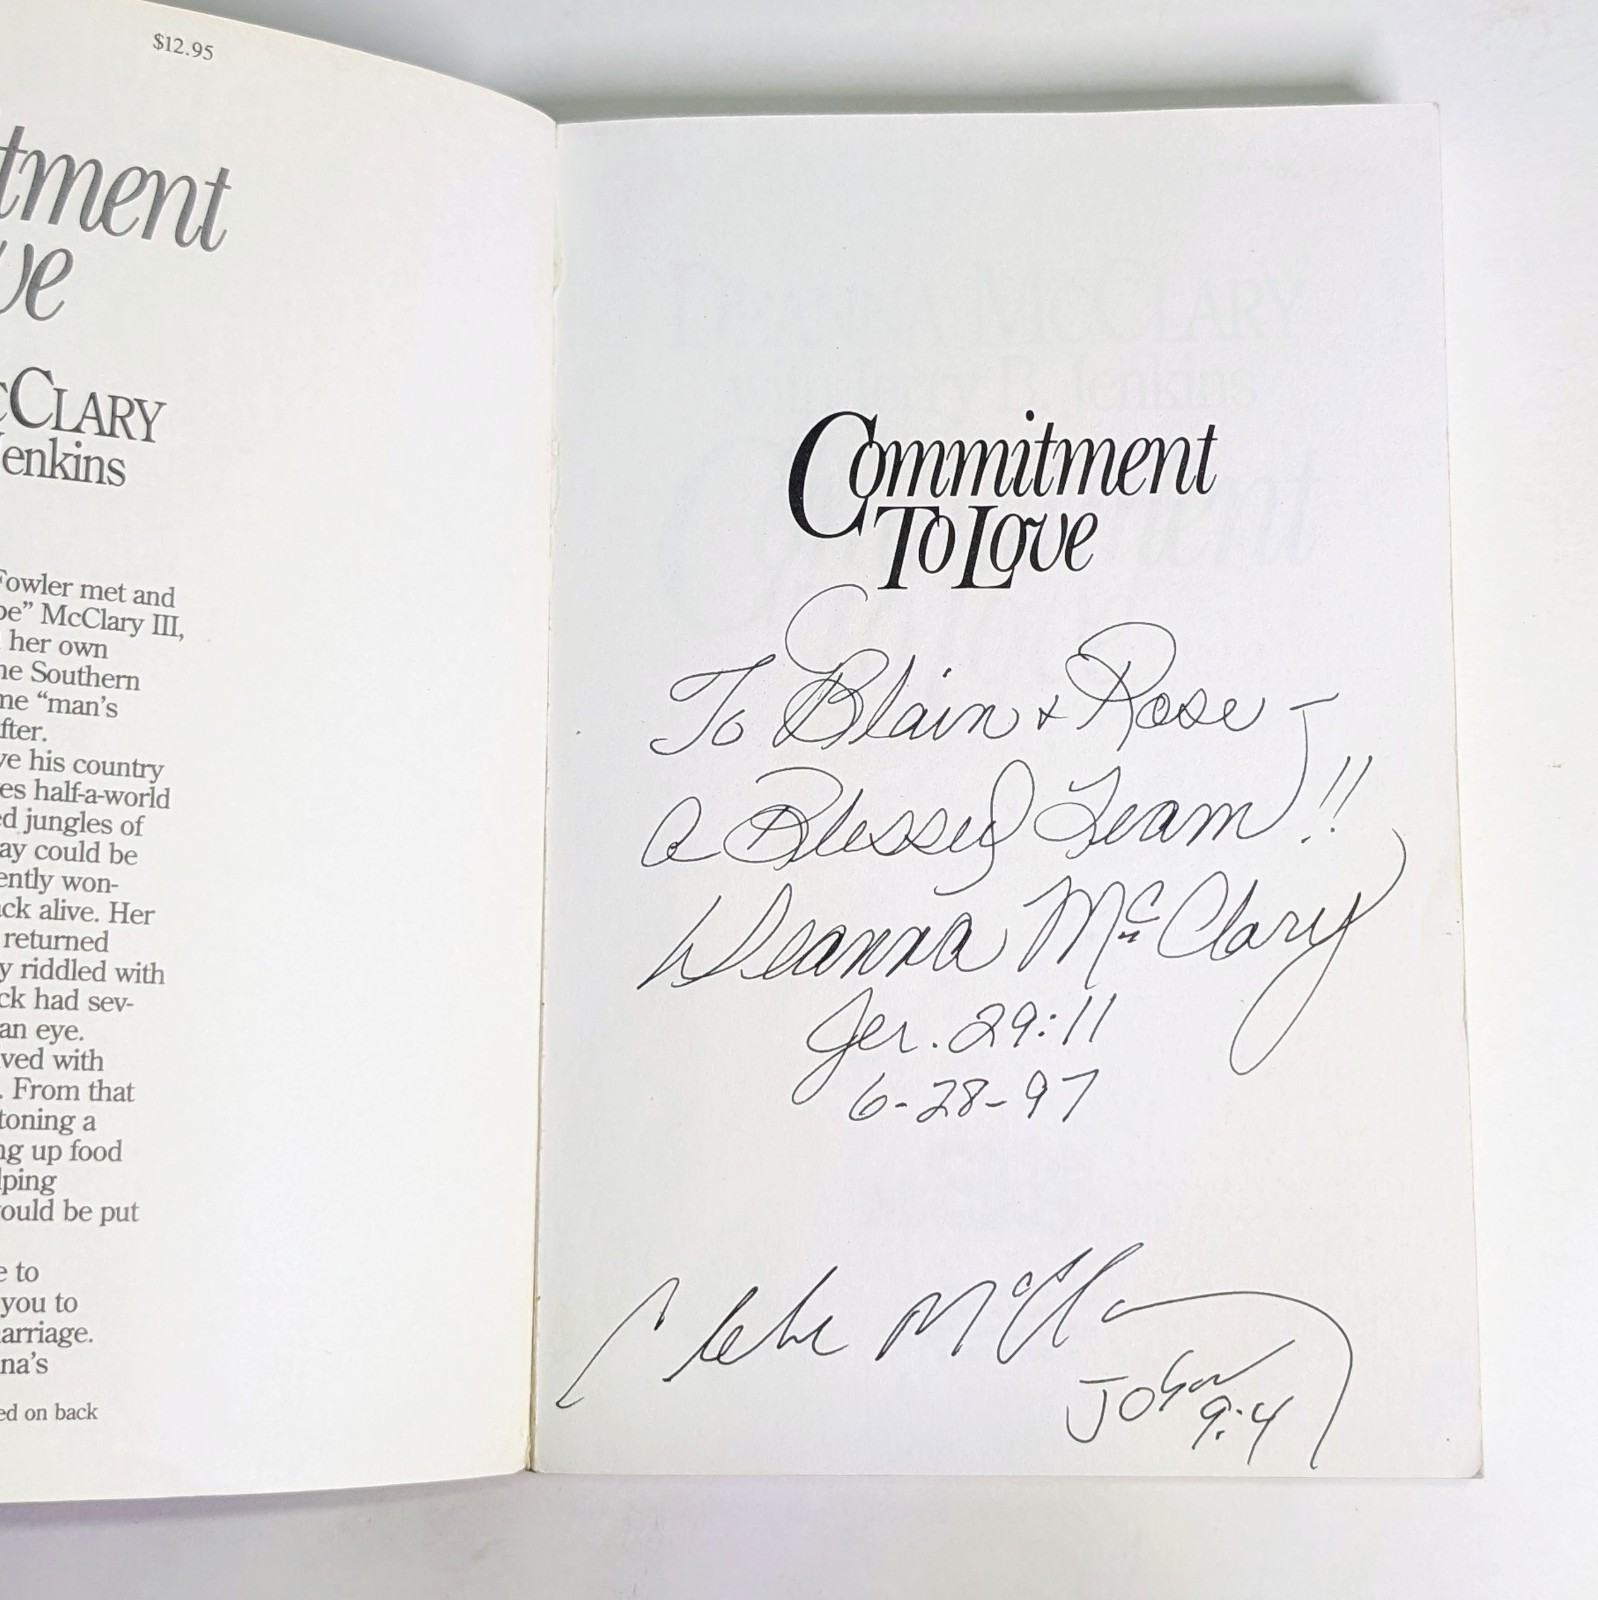 $12.95
tment
ve
cCLARY
Jenkins
Fowler met and
be” McClary III,
her own
he Southern
me “man’s
fter.
ve his country
es half-a-world
ed jungles of
ay could be
ently won-
ack alive. Her
returned
y riddled with
ck had sev-
an eye.
ved with
. From that
toning a
ng up food
lping
ould be put
e to
you to
arriage.
na’s
ed on back
DEANNA MCCLARY
with Jerry B. Jenkins
Commitment
To Love
To Blain + Rose -
a Blessed Team!!
Deanna McClary
Jer. 29:11
6-28-97
Clebe McClary
John
9:4